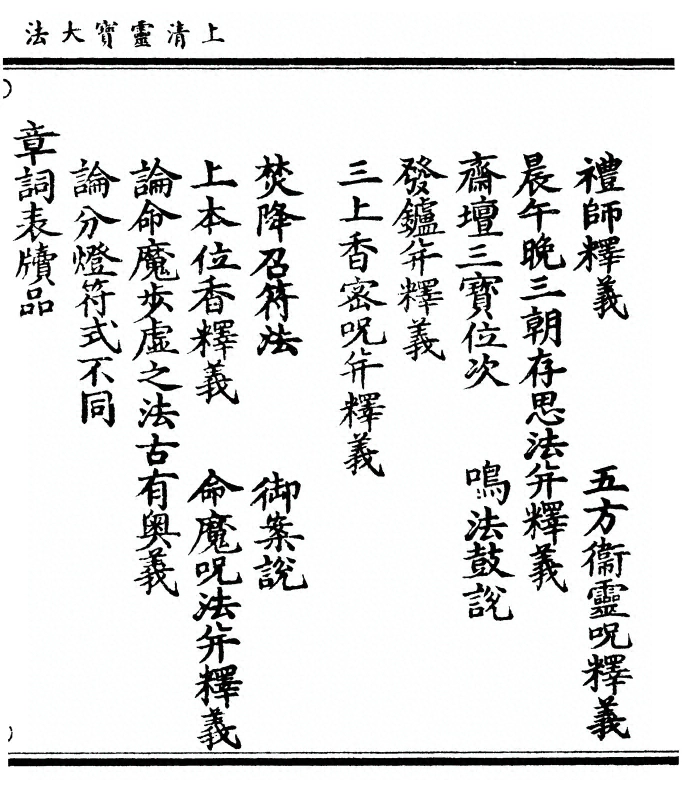 上清靈寶大法
禮師釋義　五方衞靈呪釋義
晨午晚三朝存思法并釋義
齋壇三寶位次　鳴法鼓說
發鑪并釋義
三上香密呪并釋義
焚降召符法　御案說
上本位香釋義　命魔呪法并釋義
論命魔步虛之法古有奥義
論分燈符式不同
章詞表牘品